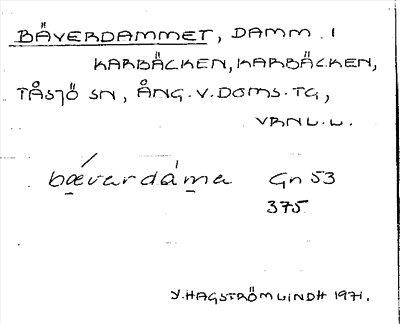 BÄVERDAMMET, DAMM I
KARBÄCKEN, KARBÄCKEN,
TÅSJÖ SN, ÅNG. V. DOMS. TG,
VRNL. L.
bævardáma Gn 53
375.
Y. HAGSTRÖM LINDH 1971.